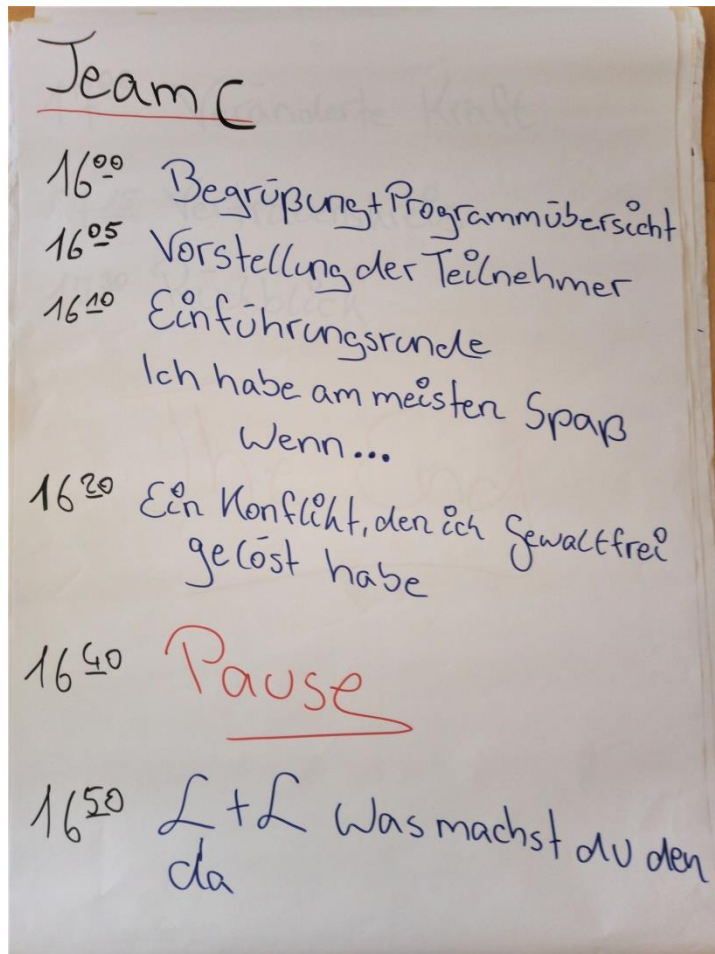 Team C
16⁰⁰ Begrüßung + Programmübersicht
16⁰⁵ Vorstellung der Teilnehmer
16¹⁰ Einführungsrunde
Ich habe am meisten Spaß
Wenn...
16²⁰ Ein Konflikt, den ich Gewaltfrei
gelöst habe
16⁴⁰ Pause
16⁵⁰ L + L Was machst du den
da